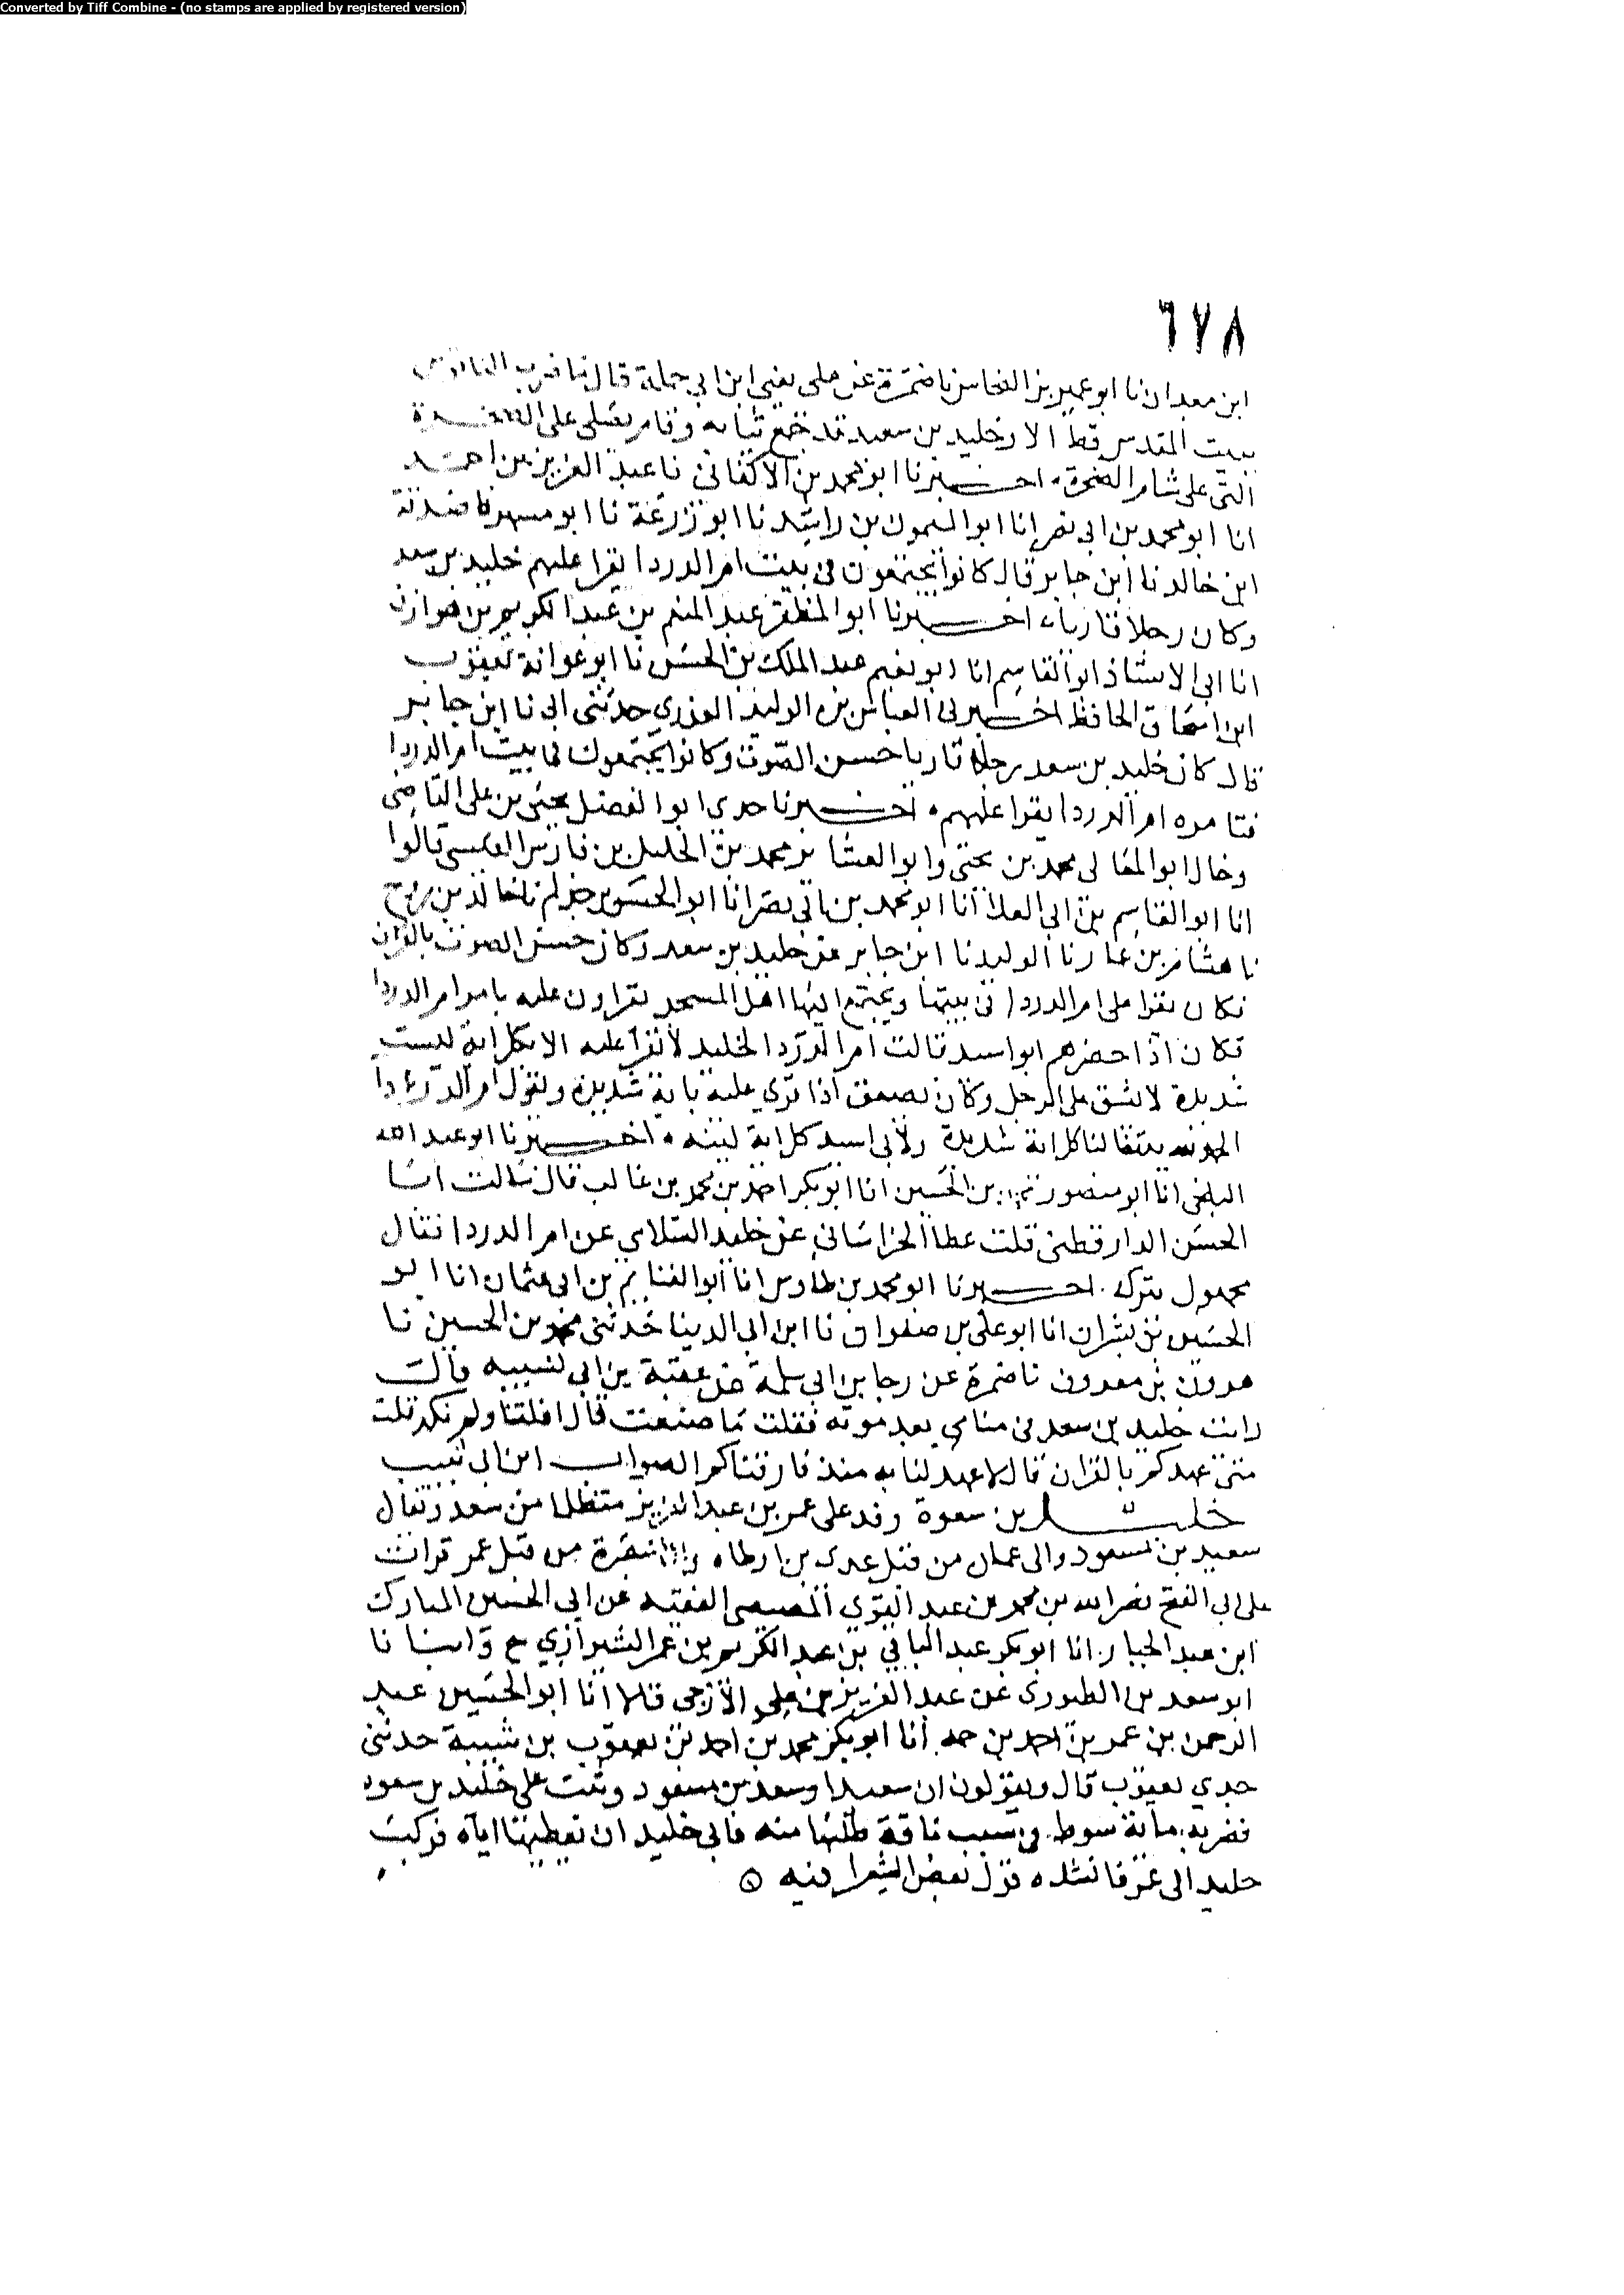 Converted by Tiff Combine - (no stamps are applied by registered version)
٦٧٨
ابن معدان نا ابو عمير بن النحاس نا ضمرة عن علي يعني ابن ابي حملة قال ما ضرب الناقوس
ببيت المقدس قط الا وخليد بن سعد قد جمع ثيابه وقام يصلي على الصخرة
التي على شام الصخرة اخبرنا ابو محمد بن الاكفاني نا عبد العزيز بن احمد
انا ابو محمد بن ابي نصر انا ابو الميمون بن راشد نا ابو زرعة نا ابو مسهر نا صدقة
ابن خالد نا ابن جابر قال كانوا يجتمعون في بيت ام الدردا يقرا عليهم خليد بن سعد
وكان رجلا قاريا اخبرنا ابو المظفر عبد المنعم بن عبد الكريم بن هوازن
انا ابي الاستاذ ابو القاسم انا ابو نعيم عبد الملك بن الحسن نا ابو عوانة يعقوب
ابن اسحاق الحافظ اخبرني العباس بن الوليد العذري حدثني ابي نا ابن جابر
قال كان خليد بن سعد رجلا قاريا حسن الصوت وكانوا يجتمعون في بيت ام الدردا
فتامره ام الدردا يقرا عليهم اخبرنا جدي ابو الفضل يحيى بن علي القاضي
وخال ابو المعالي محمد بن يحيى وابو العشاير محمد بن الخليل بن فارس القيسي قالوا
انا ابو القاسم بن ابي العلا انا ابو محمد بن ابي نصر انا ابو الحسن بن حذلم نا خالد بن روح
نا هشام بن عمار نا الوليد نا ابن جابر عن خليد بن سعد وكان حسن الصوت بالقران
فكان يقرا على ام الدردا في بيتها ويجتمع اليها اهل المسجد يقراون عليه بامر ام الدردا
فكان اذا حضرهم ابو اسيد قالت ام الدردا لخليد لا تقرا عليه الا بكل اية ليست
شديدة لا تشق على الرجل وكان يصعق اذا قري عليه باية شديدة وتقول ام الدردا
لنا كل اية شديدة ولابي اسيد كل اية لينه اخبرنا ابو عبد الله
البلخي انا ابو منصور بن الحسين انا ابو بكر احمد بن محمد بن غالب قال سالت ابا
الحسن الدارقطني قلت عطا الخراساني عن خليد السلامي عن ام الدردا فقال
مجهول يترك اخبرنا ابو محمد بن طاوس انا ابو الغنايم بن ابي عثمان انا ابو
الحسين بن بشران انا ابو علي بن صفوان نا ابن ابي الدنيا حدثني محمد بن الحسين نا
هرون بن معروف نا ضمرة عن رجا بن ابي سلمة عن عقبة بن ابي شبيبه قال
رايت خليد بن سعد في منامي بعد موته فقلت ما صنعت قال افلتنا ولم نكد قلت
متى عهدكم بالقران قال لا عهد لنا به منذ فارقناكم الصواب ابن ابي شبيب
خليد بن سعوة وفد على عمر بن عبد العزيز متظلما من سعد ويقال
سعيد بن مسعود والي عمان من قبل عدي بن ارطاه والي البصرة من قبل عمر قرات
على ابي الفتح نصر الله بن محمد بن عبد القوي المصيصي الفقيه عن ابي الحسين المبارك
ابن عبد الجبار انا ابو بكر عبد الباقي بن عبد الكريم بن عمر الشيرازي ح وانبانا
ابو سعد بن الطيوري عن عبد العزيز بن علي الازجي قالا انا ابو الحسين عبد
الرحمن بن عمر بن احمد بن حمه انا ابو بكر محمد بن احمد بن يعقوب بن شيبة حدثني
جدي يعقوب قال ويقولون ان سعيدا وسعد بن مسعود وثبت على خليد بن سعوه
فضربه ماية سوط في سبب ناقة طلبها منه فابى خليد ان يعطيها اياه فركب
خليد الى عمر فانشده قول بعض الشعرا فيه